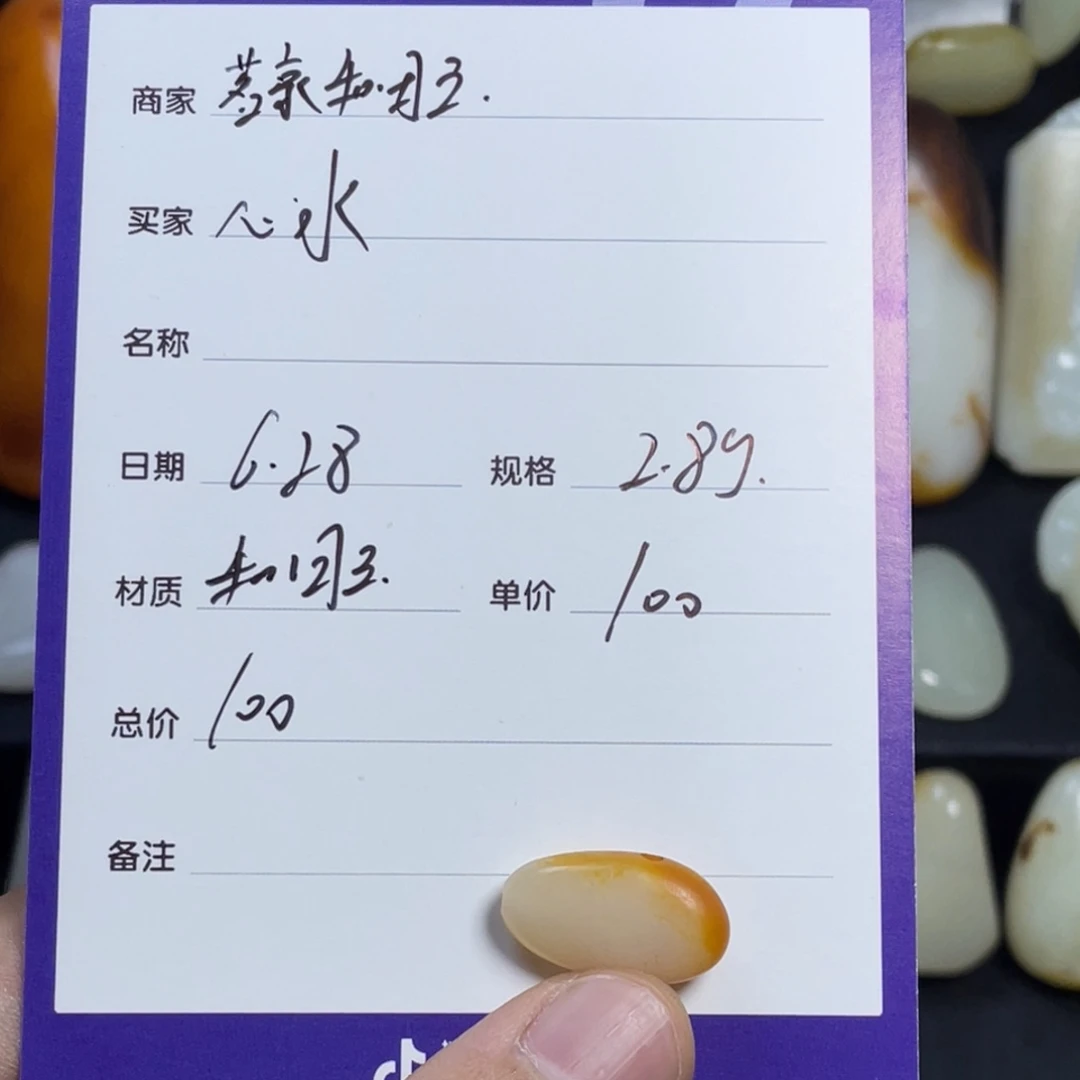 商家 和田玉.
买家 心冰
名称
日期 6.28 规格 2.8g.
材质 和田玉. 单价 100
总价 100
备注